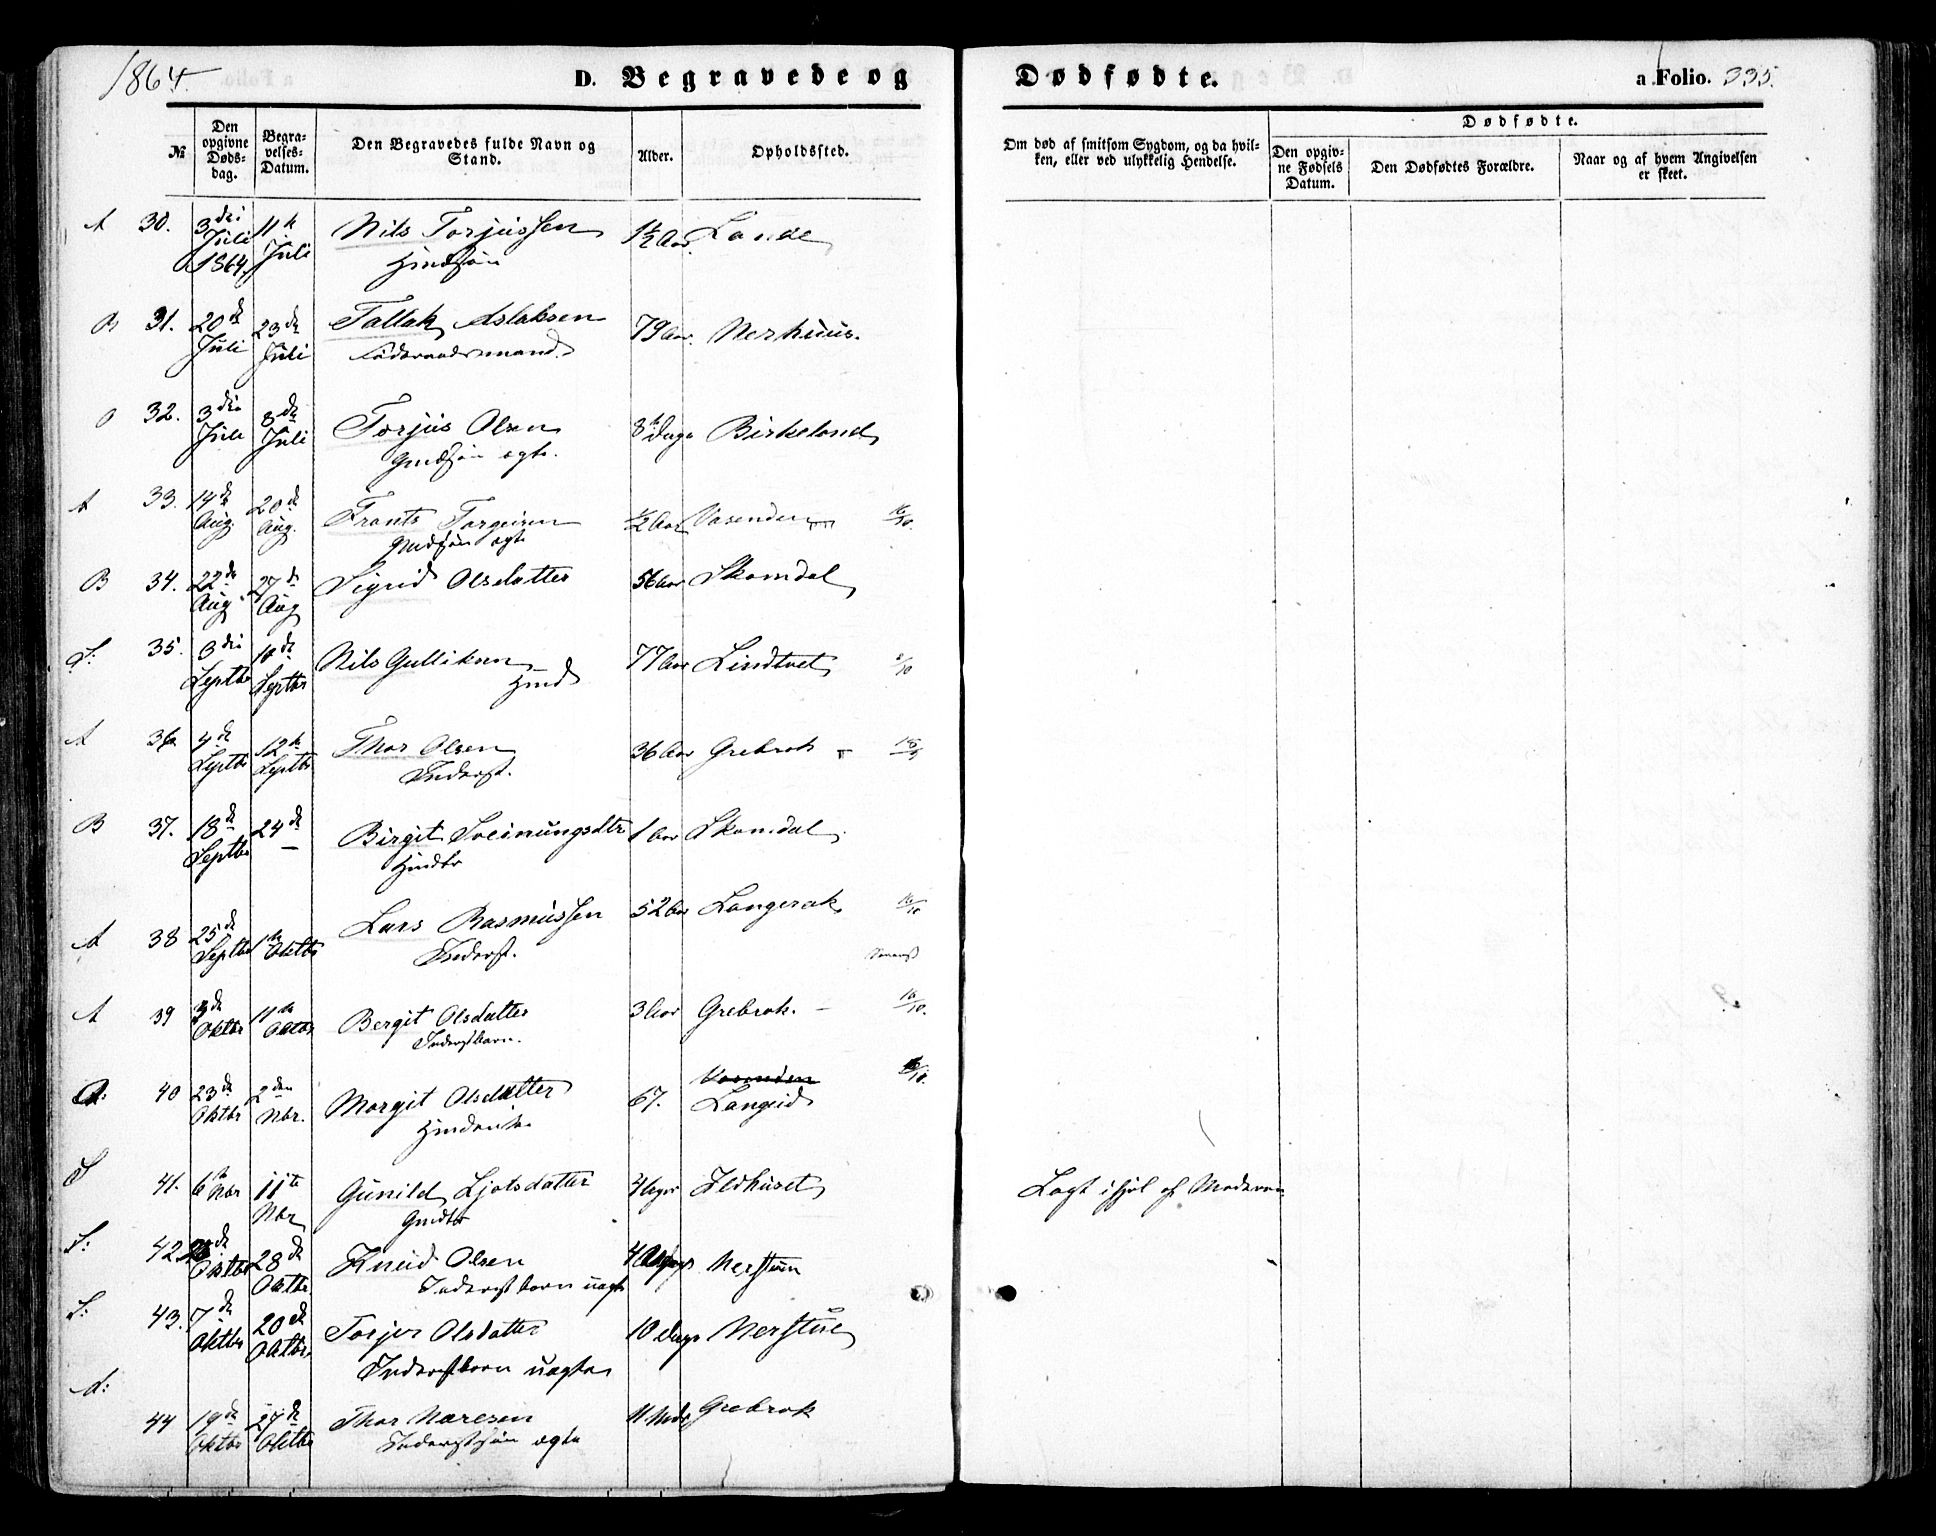 1864.
D. Begravede og
Dødfødte.
a Folio. 335.
№
Den opgivne Døds-dag.
Begra-velses-Datum.
Den Begravedes fulde Navn og Stand.
Alder.
Opholdssted.
Om død af smitsom Sygdom, og da hvil-ken, eller ved ulykkelig Hendelse.
Dødfødte.
Den opgiv-ne Fødsels Datum.
Den Dødfødtes Forældre.
Naar og af hvem Angivelsen er skeet.
A 30. 3die Juli 1864. 11te Juli Nils Torjussen 1½ Aar Lande
Gmdsøn
B 31. 20de Juli 23de Juli Tallak Aslaksen 79 Aar. Nerhuus.
Föderaadsmand
O 32. 3die Juli 8de Juli Torjus Olsen 8te Dage Birkeland
Gmdsøn ægte.
A 33. 14de Aug. 20de Aug. Frants Torgeirsen ½ Aar Vasenden 16/10.
Gmdsøn ægte
B 34. 22de Aug. 27de Aug Sigrid Olsdatter 56 Aar Skomdal
S: 35. 3die Septbr 10de Septbr Nils Gulliksen 77 Aar Lindtvet
Gmd
A 36 4de Septbr 12te Septbr Thor Olsen 36 Aar Grebrok
Inderst.
B 37. 18de Septbr 24de — Birgit Sveinungsdtr 1 Aar Skomdal
Gmdtr
A 38 25de Septbr 1te Oktbr Lars Rasmussen 52 Aar Langerak 16/10
Inderst.
A 39 3de Oktbr 11te Oktbr Bergit Olsdatter 3 Aar Grebrok. 16/10.
Inderstbarn.
A: 40 23de Oktbr 2den Nbr. Margit Olsdatter 67. Vasenden Langeid
Gmdenke
S 41. 6te Nbr 11te Nbr Gunild Ljotsdatter 4 Uger Ildhuset Lagt ihjel af Moderen
Gmdtr
S: 42 Oktbr 28de Oktbr Knud Olsen 4 Nerstuen
Inderstbarn uægte
S: 43. 7de Oktbr 20de Oktbr Torjer Olsdatter 10 Dage Nerstue
Inderstbarn uægte
A: 44 19de Oktbr 27de Oktbr Thor Naresen 11 Mdr Grebrok
Inderstsøn ægte